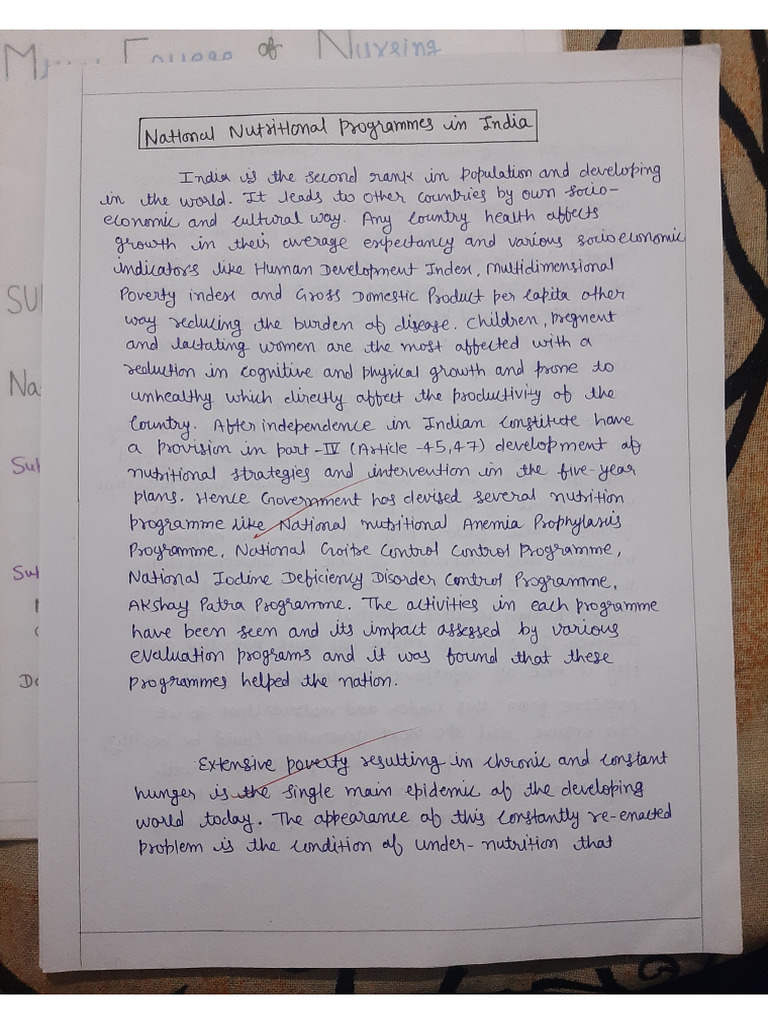 of Nursing
National Nutritional Programmes in India
India is the second rank in population and developing
in the world. It leads to other countries by own socio-
economic and cultural way. Any country health affects
growth in their average expectancy and various socioeconomic
indicators like Human Development Index, Multidimensional
Poverty index and Gross Domestic Product per capita other
way reducing the burden of disease. Children, pregnent
and lactating women are the most affected with a
reduction in cognitive and physical growth and prone to
unhealthy which directly affect the productivity of the
country. After independence in Indian constitute have
a provision in part-IV (Article -45,47) development of
nutritional strategies and intervention in the five-year
plans. Hence Government has devised several nutrition
programme like National nutritional Anemia Prophylaxis
Programme, National Goitre Control Control Programme,
National Iodine Deficiency Disorder Control Programme,
Akshay Patra Programme. The activities in each programme
have been seen and its impact assessed by various
evaluation programs and it was found that these
programmes helped the nation.
Extensive poverty resulting in chronic and constant
hunger is the single main epidemic of the developing
world today. The appearance of this constantly re-enacted
problem is the condition of under-nutrition that
SU
Na
Sub
Sub